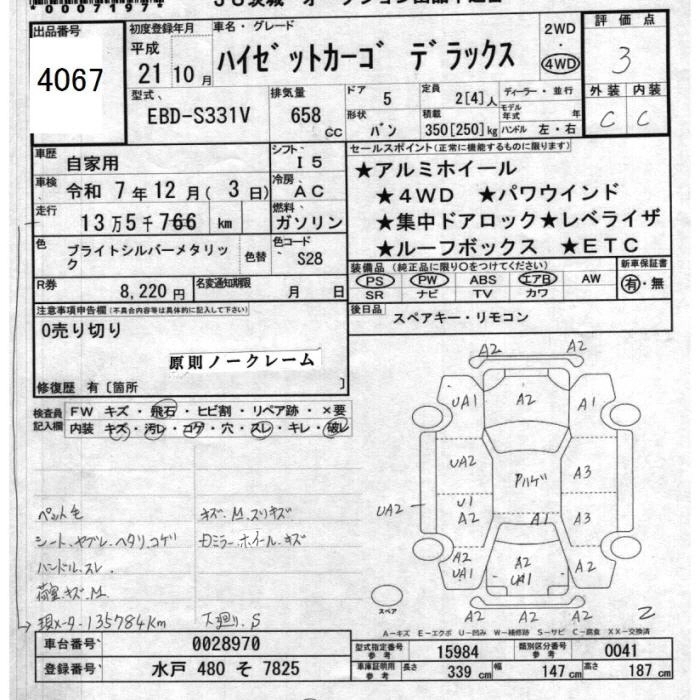 *00071971*
出品番号
4067
初度登録年月
平成
21年10月
車名・グレード
ハイゼットカーゴ デラックス
2WD
・
4WD
評価点
3
型式、
EBD-S331V
排気量
658
CC
ドア
5
形状
バン
定員
2[4]人
積載
350[250]kg
ディーラー・並行
モデル年式 年
ハンドル 左・右
外装 内装
C C
車歴
自家用
シフト
I5
車検
令和 7年12月( 3日)
冷房
AC
走行
13万5千766 km
燃料
ガソリン
色
ブライトシルバーメタリック
色替
色コード
S28
R券
8,220円
名変通知期限
月 日
セールスポイント(正常に機能するものに限ります)
★アルミホイール
★4WD ★パワウインド
★集中ドアロック★レベライザ
★ルーフボックス ★ETC
装備品(純正品に限り○をつけてください)
PS PW ABS エアB AW
SR ナビ TV カワ
新車保証書
有・無
後日品
スペアキー・リモコン
注意事項申告欄(不具合内容等は具体的に記入して下さい)
0売り切り
原則ノークレーム
修復歴 有〔箇所 〕
検査員記入欄
FW キズ・飛石・ヒビ割・リペア跡・×要
内装 キズ・汚レ・コゲ・穴・スレ・キレ・破レ
ペット毛
シート、ヤブレ、ヘタリ、コゲ
ハンドル、スレ
荷室、キズ、M
現メータ・135784Km
キズ、M、スリキズ
Dミラー、ホイール、キズ
下廻り、S
A2 A2
UA1 A2 A1
UA2 アルゲ A3
UA2 U1 A2 A1 A3
A2 UA1 A2 UA1 A2
A2 A2
スペア
A-キズ E-エクボ U-凹み W-補修跡 S-サビ C-腐食 XX-交換済
車台番号
0028970
登録番号
水戸 480 そ 7825
型式指定番号参考
15984
類別区分番号参考
0041
車庫証明用参考
長さ 339 cm 幅 147 cm 高さ 187 cm